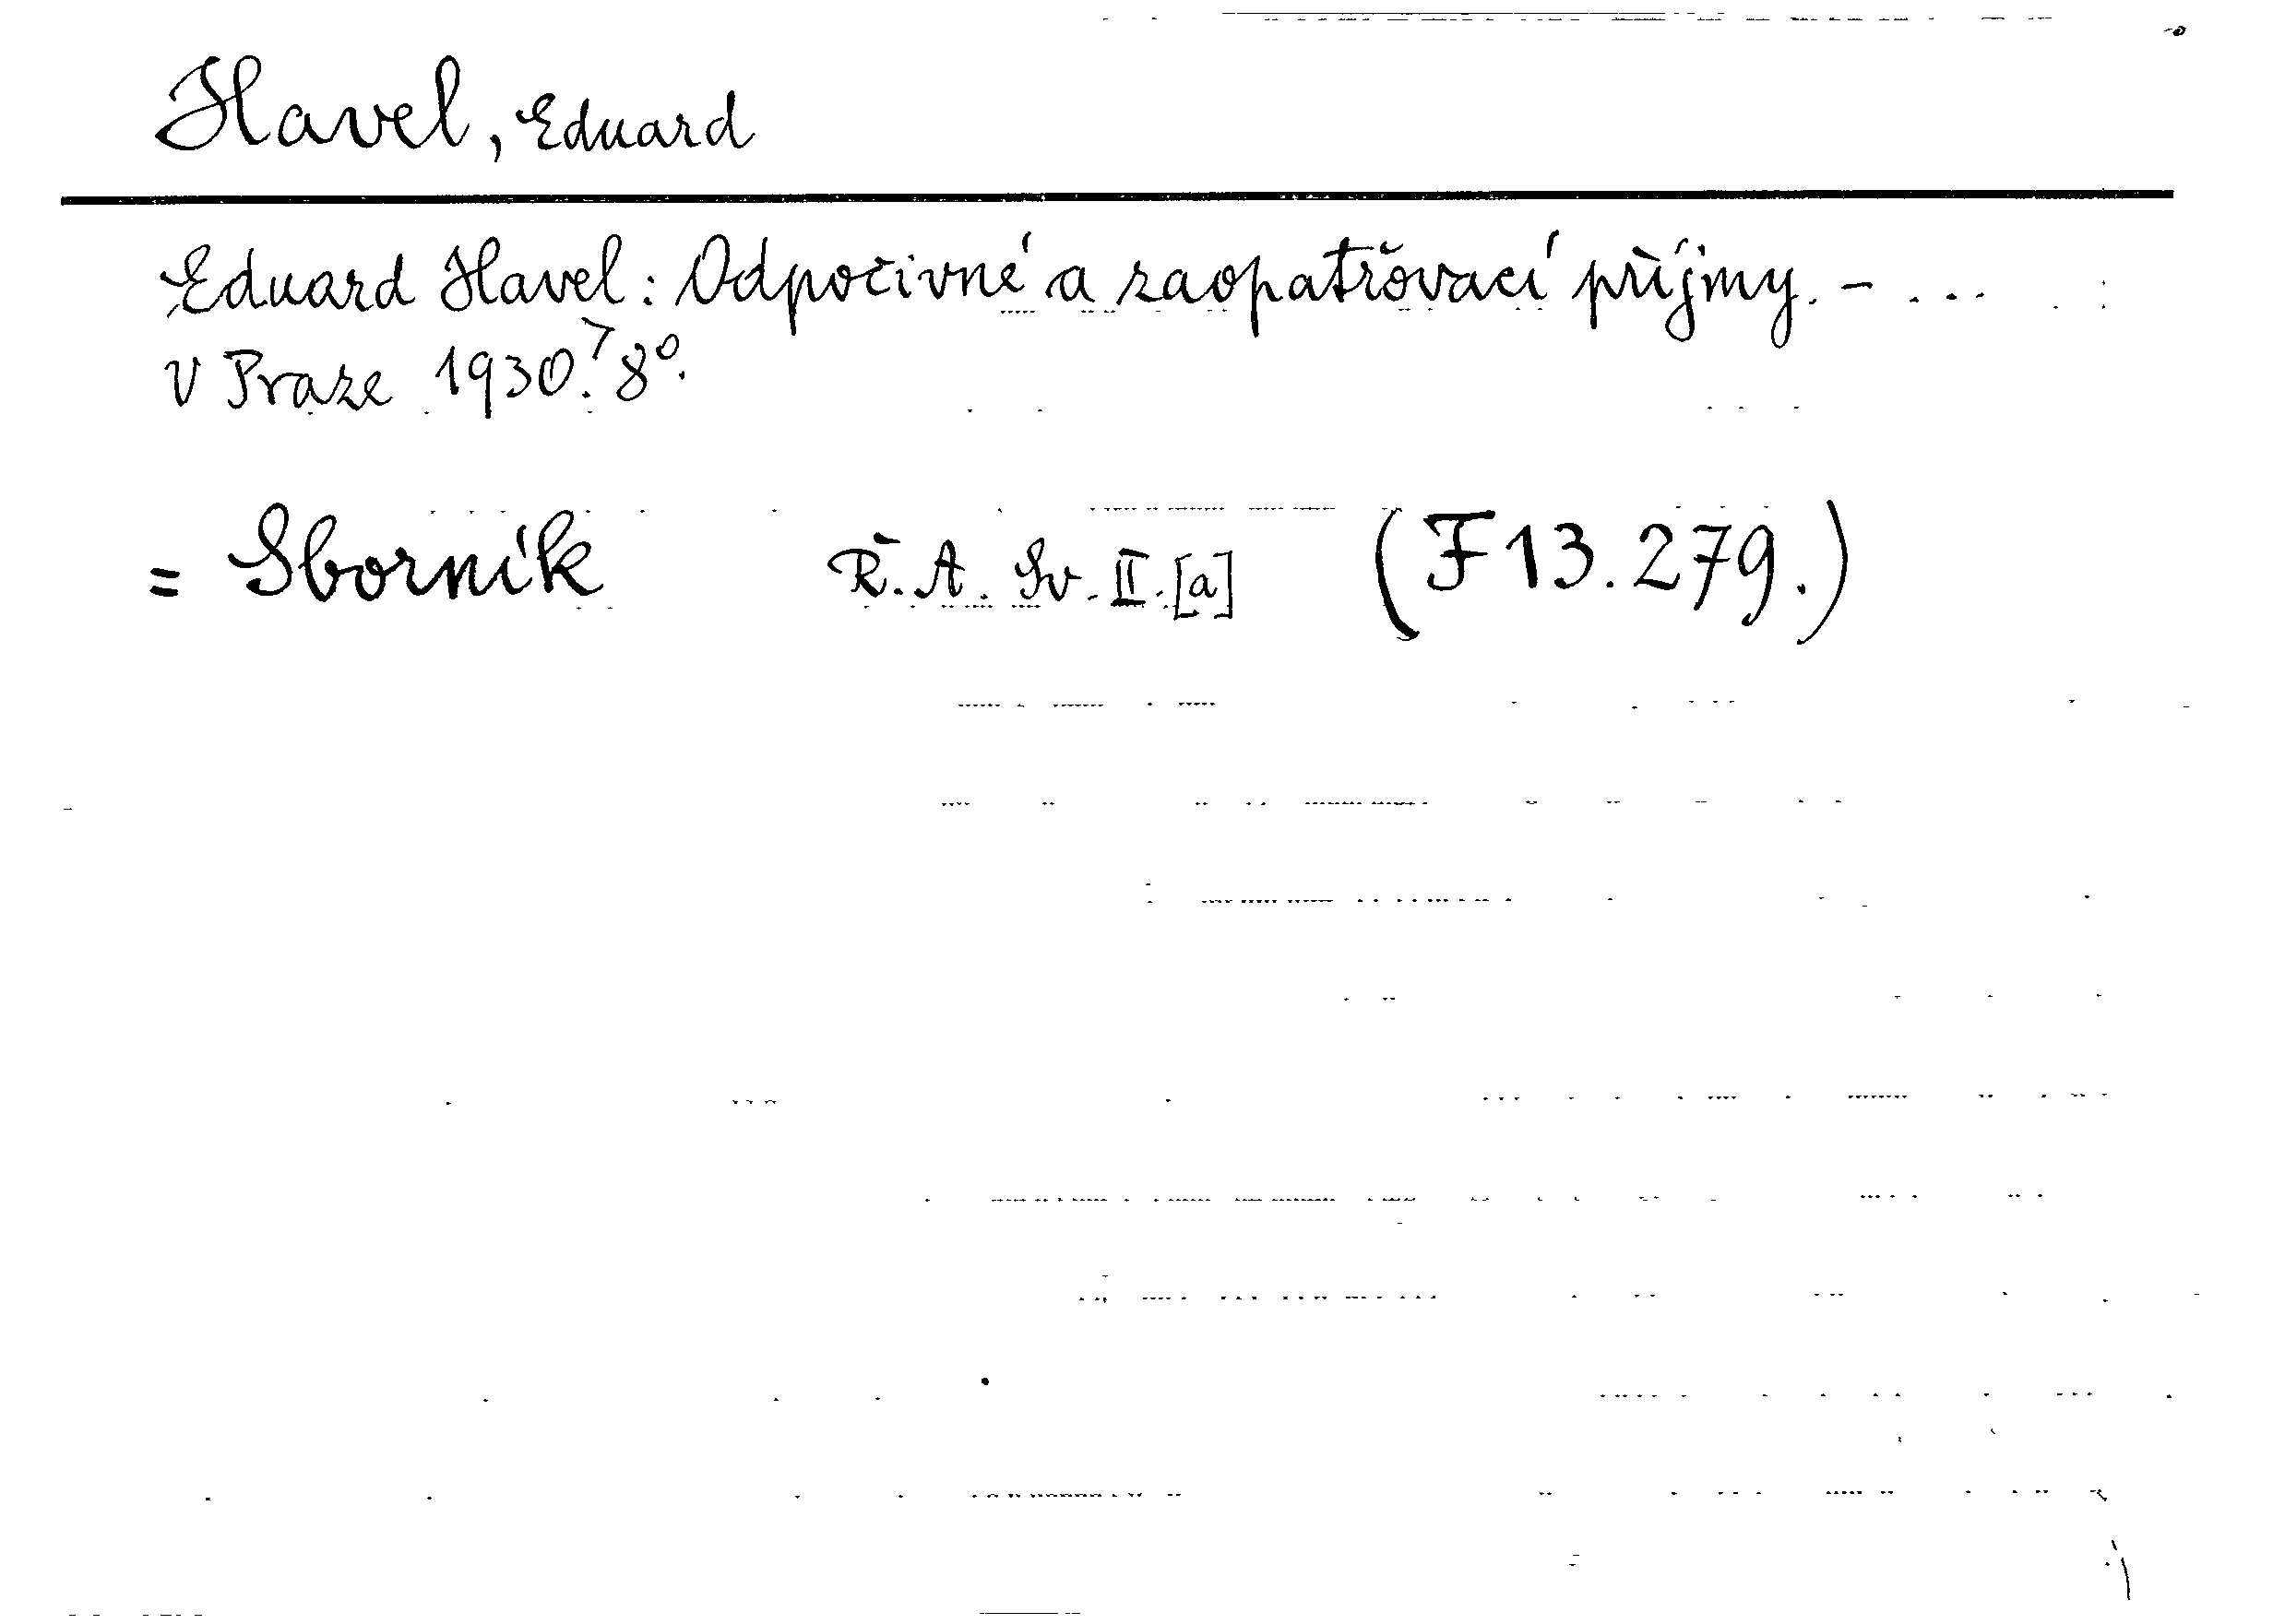 Havel, Eduard
Eduard Havel: Odpočivné a zaopatřovací příjmy. - ...
V Praze 1930. 8°.
= Sborník Ř. A. Sv. II. [a] (F 13.279.)